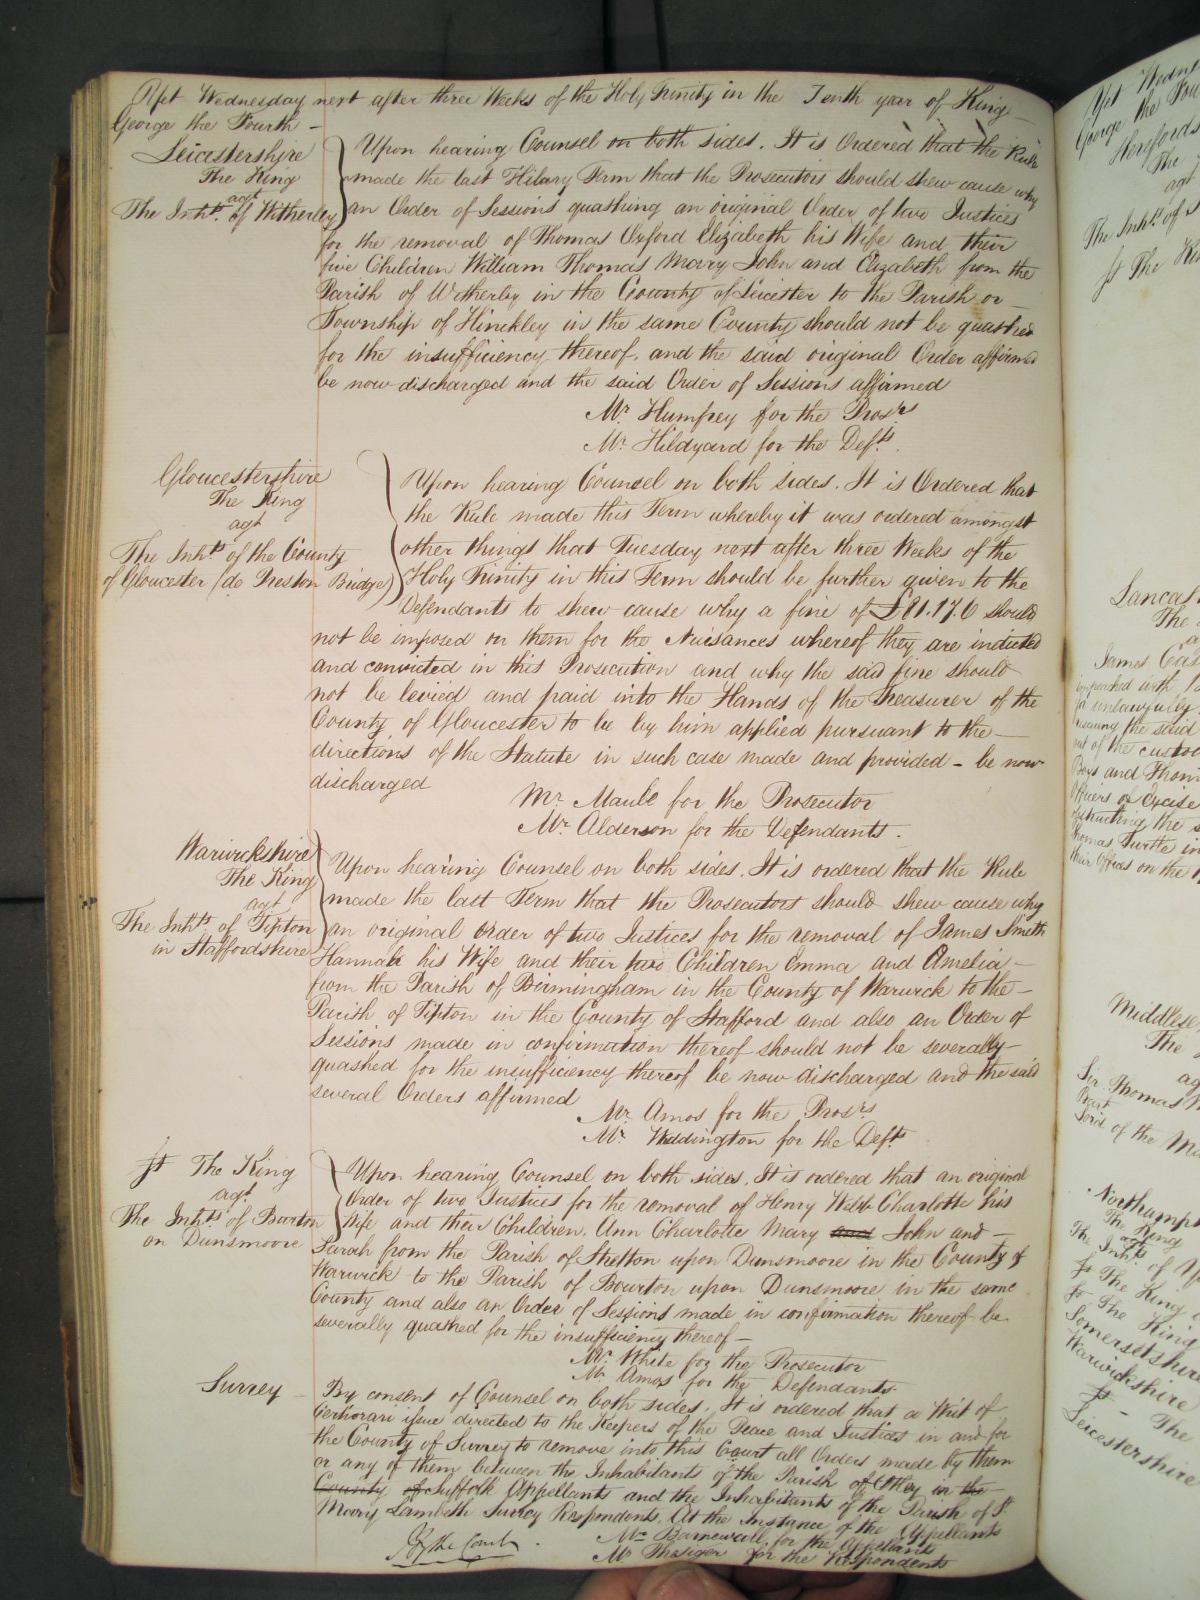 Yet Wednesday next after three Weeks of the Holy Trinity in the Tenth year of King
George the Fourth
Leicestershire
The King
agt
The Inhts. of Witherley
Upon hearing Counsel on both sides. It is Ordered that the Rule
made the last Hilary Term that the Prosecutors should shew cause why
an Order of Sessions quashing an original Order of two Justices
for the removal of Thomas Oxford Elizabeth his Wife and their
five Children William Thomas Mary John and Elizabeth from the
Parish of Witherley in the County of Leicester to the Parish or
Township of Hinckley in the same County should not be quashed
for the insufficiency thereof. and the said original Order affirmed
be now discharged and the said Order of Sessions affirmed
Mr. Humfrey for the Prosrs
Mr. Hildyard for the Defts.
Gloucestershire
The King
agt
The Inhts of the County
of Gloucester (de Preston Bridge)
Upon hearing Counsel on both sides. It is Ordered that
the Rule made this Term whereby it was ordered amongst
other things that Tuesday next after three Weeks of the
Holy Trinity in this Term should be further given to the
Defendants to shew cause why a fine of £81.17.6 should
not be imposed on them for the Nuisances whereof they are indicted
and convicted in this Prosecution and why the said fine should
not be levied and paid into the Hands of the Treasurer of the
County of Gloucester to be by him applied pursuant to the
directions of the Statute in such case made and provided - be now
discharged
Mr. Maule for the Prosecutor
Mr. Alderson for the Defendants.
Warwickshire
The King
agt
The Inhts of Tipton
in Staffordshire
Upon hearing Counsel on both sides. It is ordered that the Rule
made the last Term that the Prosecutors should shew cause why
an original order of two Justices for the removal of James Smith
Hannah his Wife and their two Children Emma and Amelia
from the Parish of Birmingham in the County of Warwick to the
Parish of Tipton in the County of Stafford and also an Order of
Sessions made in confirmation thereof should not be severally
quashed for the insufficiency thereof be now discharged and the said
several Orders affirmed
Mr. Amos for the Prosrs
Mr. Waddington for the Defts
St The King
agt.
The Inhts of Bourton
on Dunsmoore
Upon hearing Counsel on both sides. It is ordered that an original
Order of two Justices for the removal of Henry Webb Charlotte his
Wife and their Children. Ann Charlotte Mary and John and
Sarah from the Parish of Stretton upon Dunsmoore in the County of
Warwick to the Parish of Bourton upon Dunsmoore in the same
County and also an Order of Sessions made in confirmation thereof be
severally quashed for the insufficiency thereof
Mr. White for the Prosecutor
Mr. Amos for the Defendants.
Surrey
By consent of Counsel on both sides. It is ordered that a Writ of
Certiorari issue directed to the Keepers of the Peace and Justices in and for
the County of Surrey to remove into this Court all Orders made by them
or any of them between the Inhabitants of the Parish of Otley in the
County of Suffolk Appellants and the Inhabitants of the Parish of St
Mary Lambeth Surrey Respondents. At the Instance of the Appellants
Mr. Barnewall for the Appellants
Mr. Thesiger for the Respondents
By the Court
Yet Wednes
George the Fou
Herefords
The
agt
The Inhts of
St The Kin
Lancas
The
James Cas
for unlawfully
rescuing the said
out of the custod
Boys and Thom
Officers of Excise
obstructing the s
Thomas Turtle in
their Offices on the
Middlese
The
ag
Sir Thomas
Bart
Lord of the Ma
Northampt
The King
agt
The Inhts of
St The King
St The King
Somersetshire
Warwickshire
St - The
Leicestershire